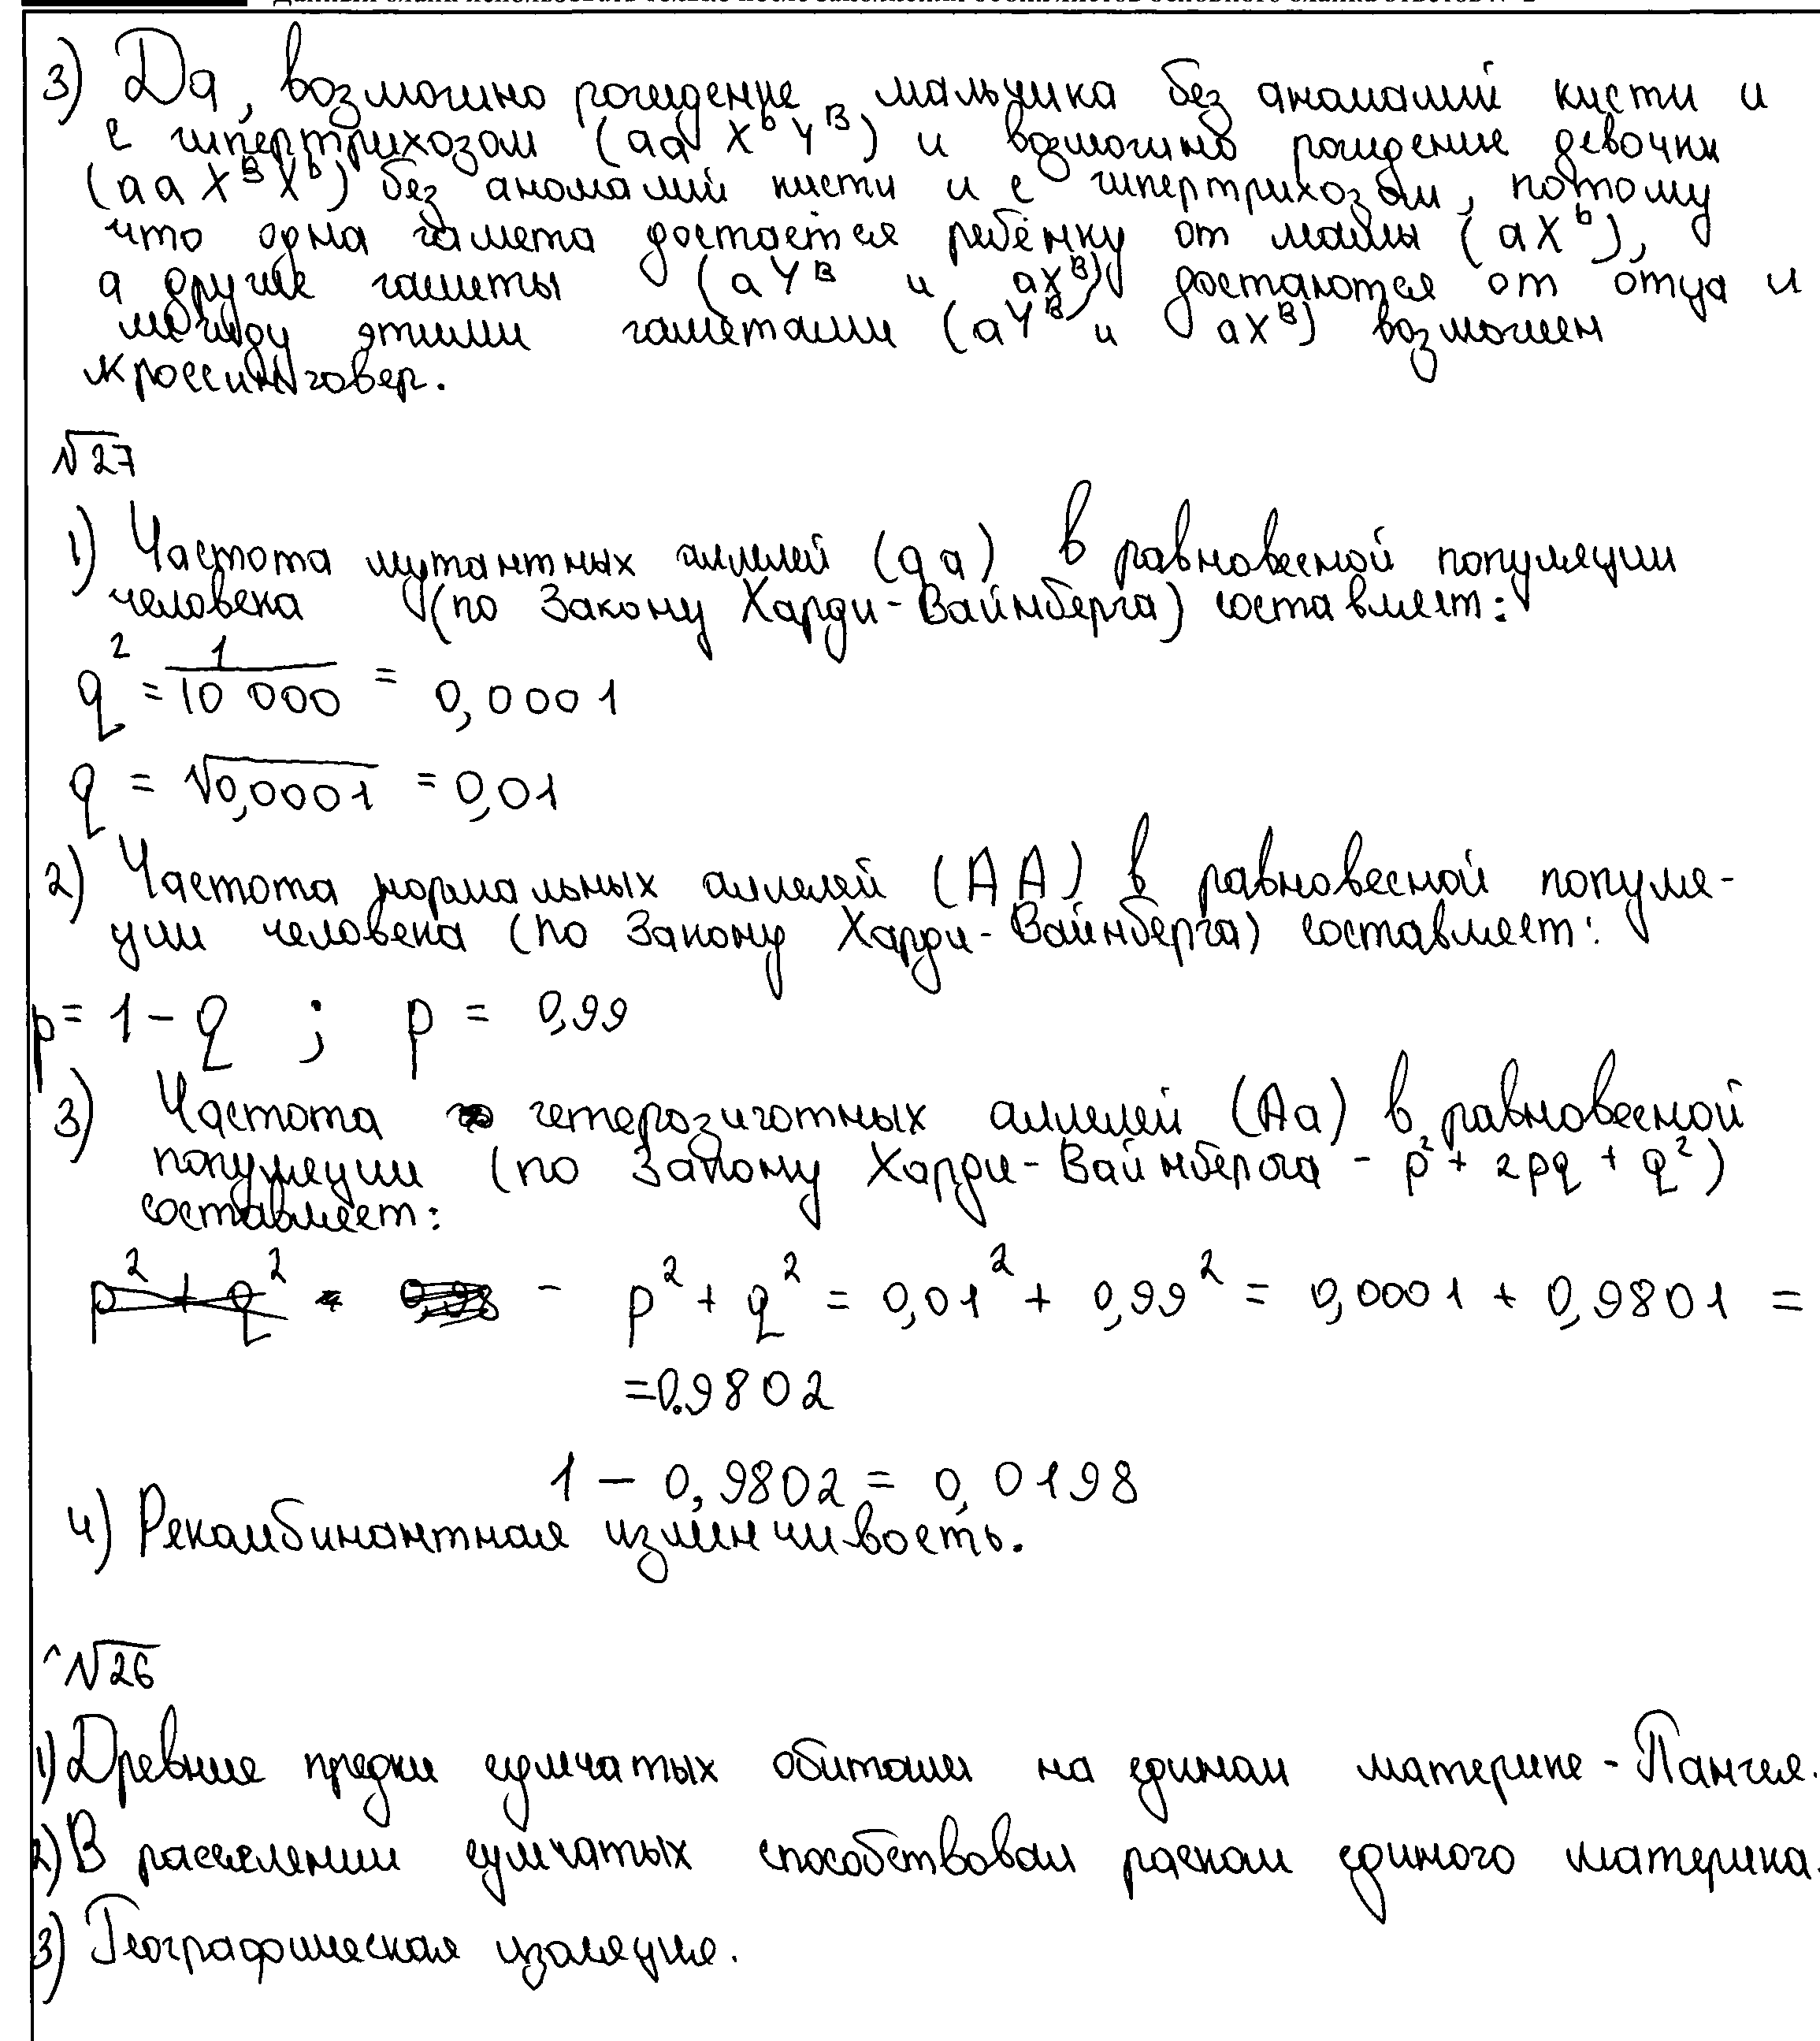 3) Да, возможно рождение мальчика без аномалий кисти и
с гипертрихозом (aa X^b Y^B) и возможно рождение девочки
(aa X^B X^b) без аномалий кисти и с гипертрихозом, потому
что одна гамета достаётся ребёнку от мамы (aX^b),
а другие гаметы (aY^B и aX^B) достаются от отца и
между этими гаметами (aY^B и aX^B) возможен
кроссинговер.
№27
1) Частота мутантных аллелей (aa) в равновесной популяции
человека (по Закону Харди-Вайнберга) составляет:
q² = 1/10 000 = 0,0001
q = √0,0001 = 0,01
2) Частота нормальных аллелей (AA) в равновесной популя-
ции человека (по Закону Харди-Вайнберга) составляет:
p = 1 - q ; p = 0,99
3) Частота гетерозиготных аллелей (Aa) в равновесной
популяции (по Закону Харди-Вайнберга - p² + 2pq + q²)
составляет:
p² + q² = 0,01² + 0,99² = 0,0001 + 0,9801 =
=0.9802
1 - 0,9802 = 0,0198
4) Рекомбинантная изменчивость.
№26
1) Древние предки сумчатых обитали на едином материке - Пангея.
2) В расселении сумчатых способствовал раскол единого материка.
3) Географическая изоляция.